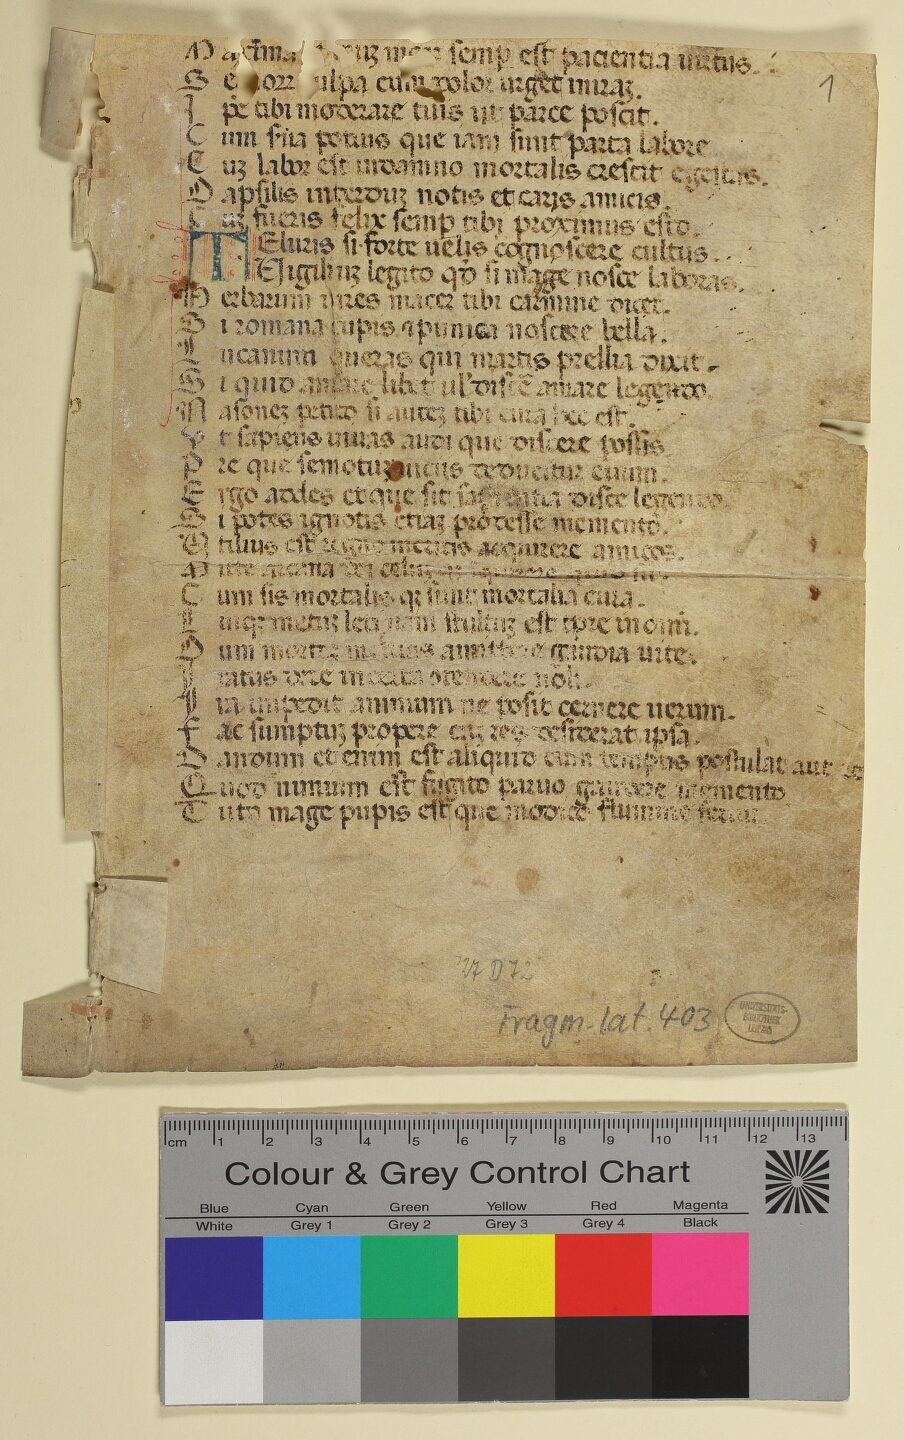 semp est pacientia uirtus.
1
ulpa cum dolor urget
I pe tibi moderare tuis ut parce poscit.
C um sua potius que iam sunt parta labore
C uz labor est in damno mortalis crescit egestas.
D apsilis interduz notis et caris amicis.
C uz fueris felix semp tibi proximus esto.
T Eluris si forte uelis cognoscere cultus.
Uigiliuz legito qd si mage nosce laboras.
H erbarum uires macer tibi carmine dicet.
S i romana cupis & punica noscere bella.
L ucanum queras qui martis prelia dixit.
S i quid amare libet ul' disce amare legendo.
N asonez petito si autez tibi cura hec est.
V t sapiens uiuas audi que discere possis
P re que semotuz uiciis deducitur euum.
E rgo addes et que sit sapientia disce legendo.
S i potes ignotis etiaz prodesse memento.
U tilius est regno meritis acquirere amicos.
M
C um sis mortalis q; sunt mortalia cura.
L inqz metuz leti nam stultuz est tpre in omni.
D um mortez metuas amittere gaudia uite.
I ratus de re incerta contendere noli.
I ra impedit animum ne posit cernere uerum.
F ac sumptuz propere cuz res desiderat ipsa.
D andum et enim est aliquid cum tempus postulat aut
Q uod nimium est fugito paruo gaudere memento
T uta mage pupis est que modico flumine
27 D 72
Fragm. lat. 403
UNIVERSITÄTS-
BIBLIOTHEK
LEIPZIG
cm 1 2 3 4 5 6 7 8 9 10 11 12 13
Colour & Grey Control Chart
Blue Cyan Green Yellow Red Magenta
White Grey 1 Grey 2 Grey 3 Grey 4 Black